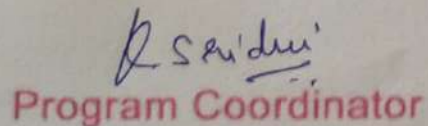 R Sridevi
Program Coordinator